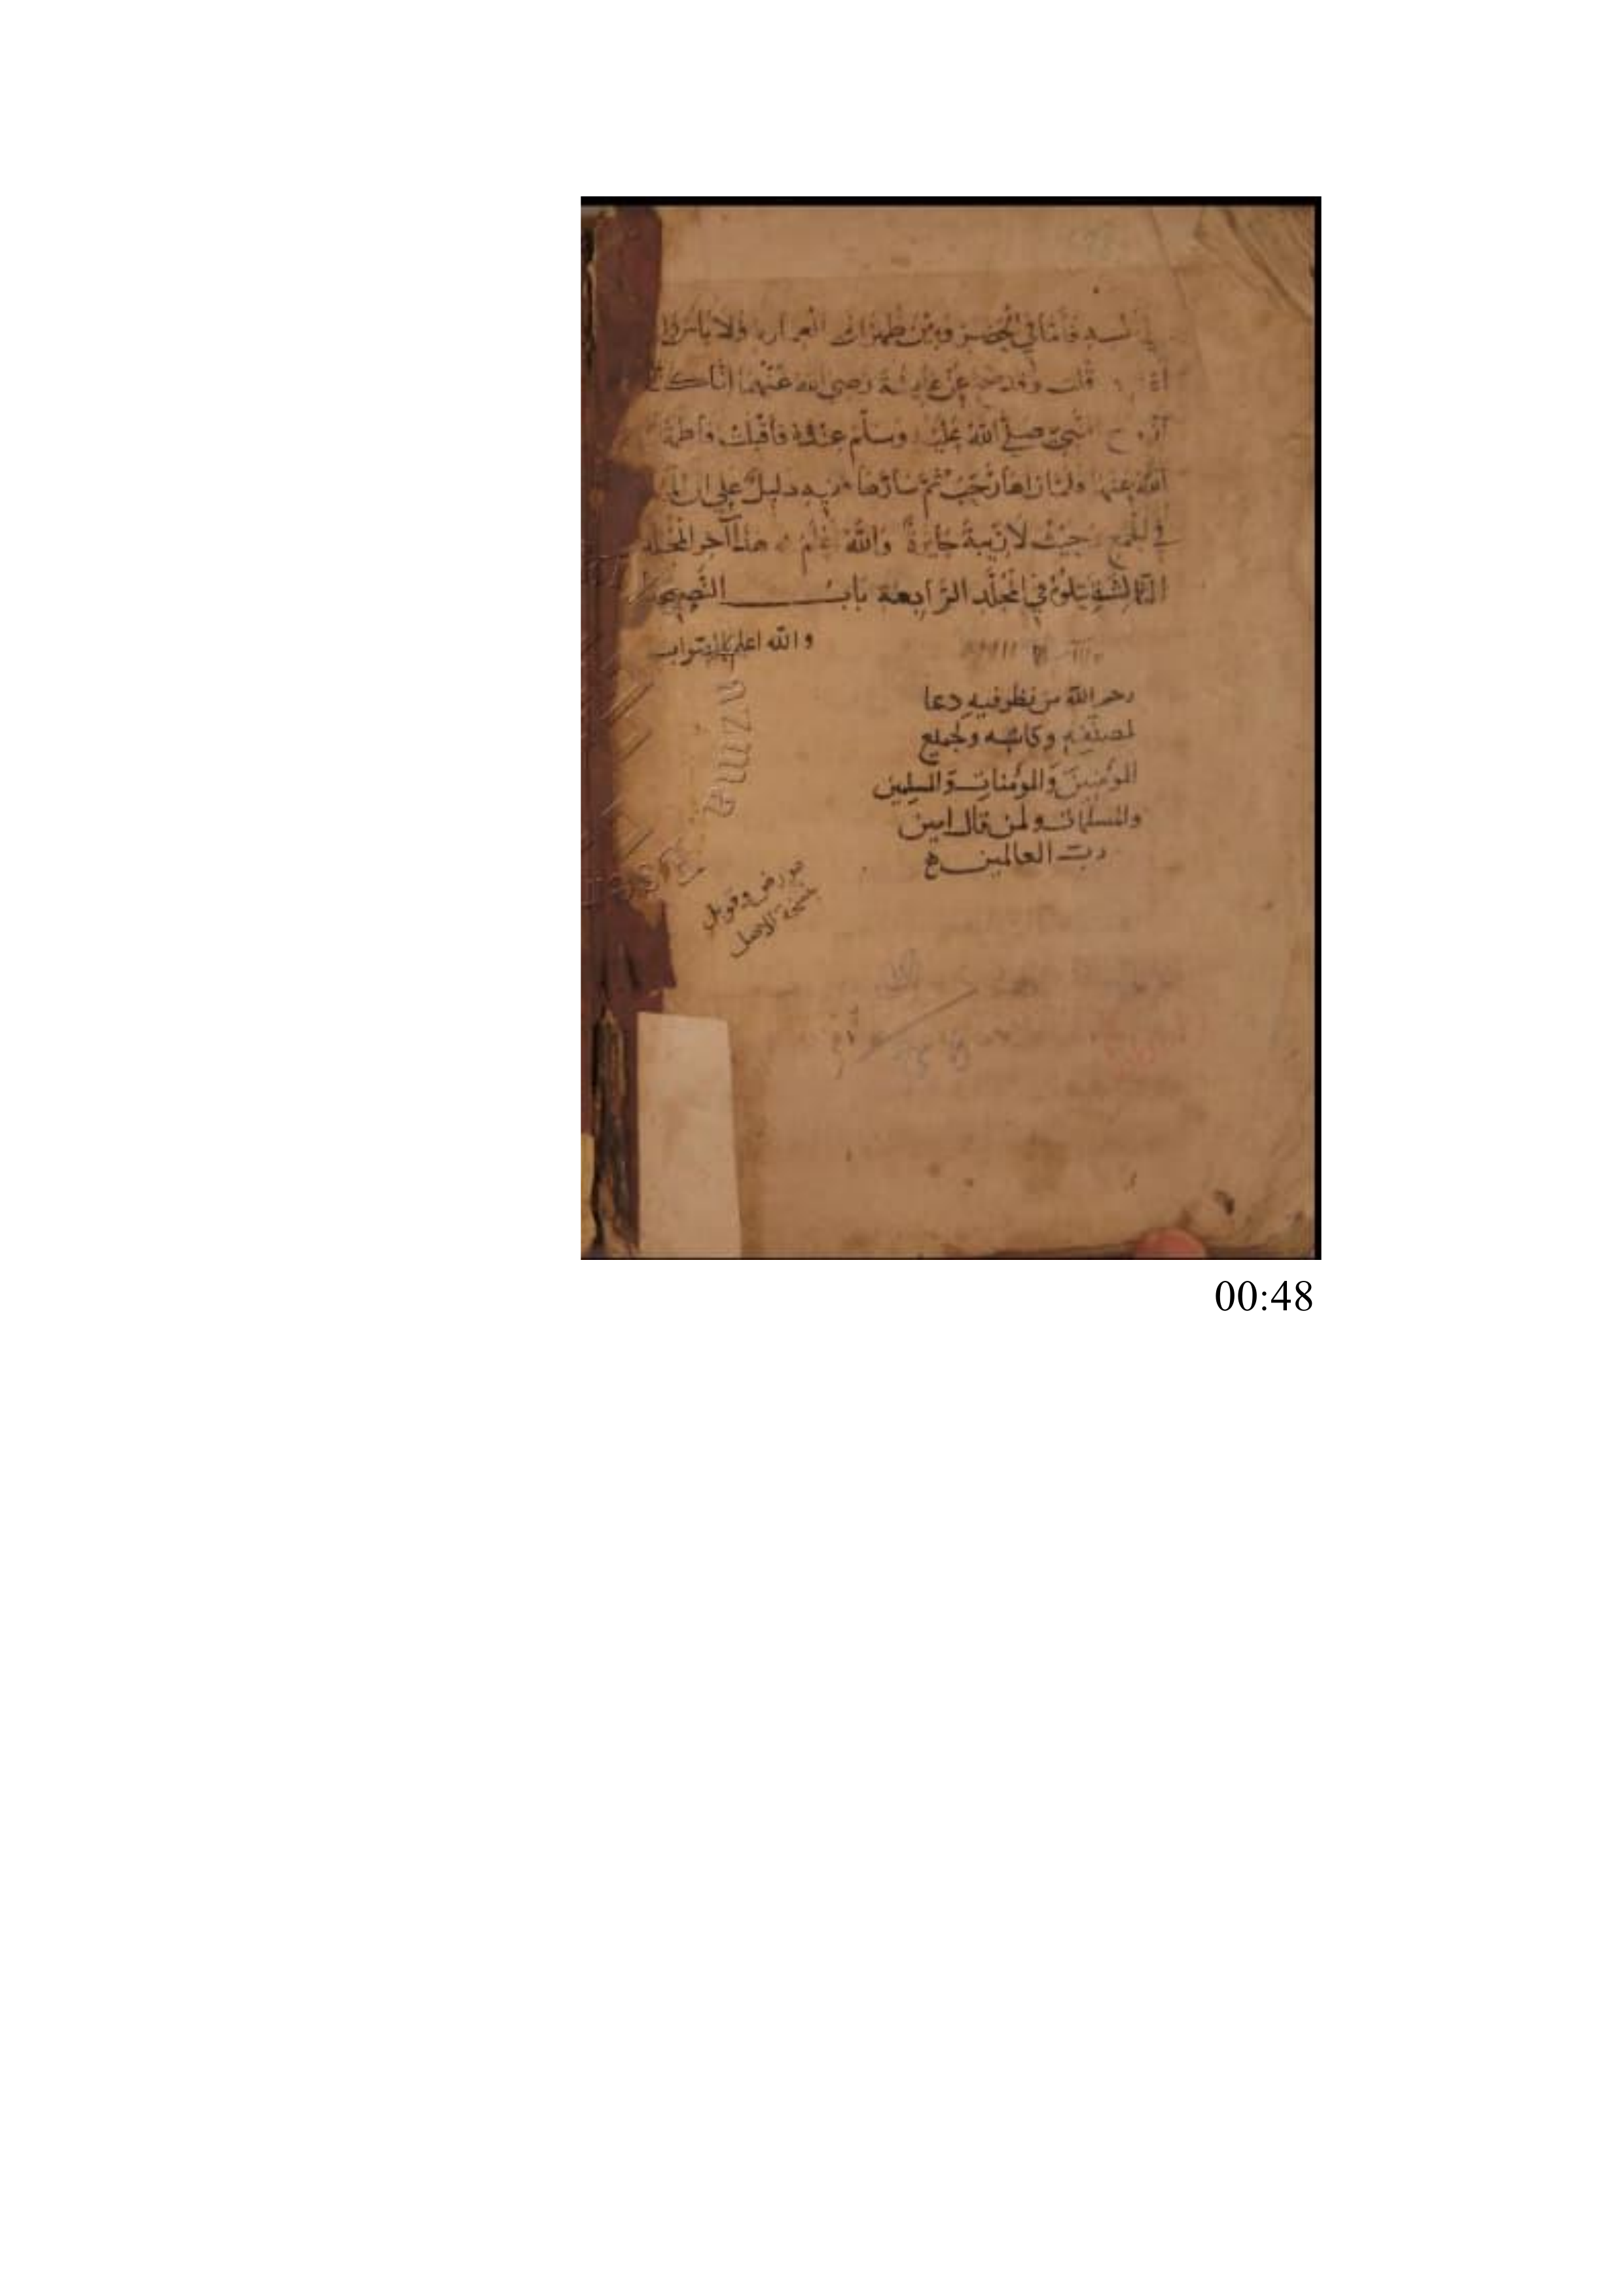 فأما في الحضر وبين ظهراني العمارة فلا بأس
قلت وقد صح عن عايشة رضي الله عنها انا كنا
أزواج النبي صلى الله عليه وسلم عنده فأقبلت فاطمة
الله عنها فلما رآها رحب ثم سارها فيه دليل على ان
في الجمع حيث لا ريبة جايزة والله أعلم هذا آخر المجلد
الثالثة يتلوه في المجلد الرابعة باب النصيحة
والله اعلم بالصواب
رحم الله من نظر فيه دعا
لمصنفه وكاتبه ولجميع
المؤمنين والمؤمنات والمسلمين
والمسلمات ولمن قال امين
رب العالمين
عورض وقوبل
بنسخة الاصل
00:48